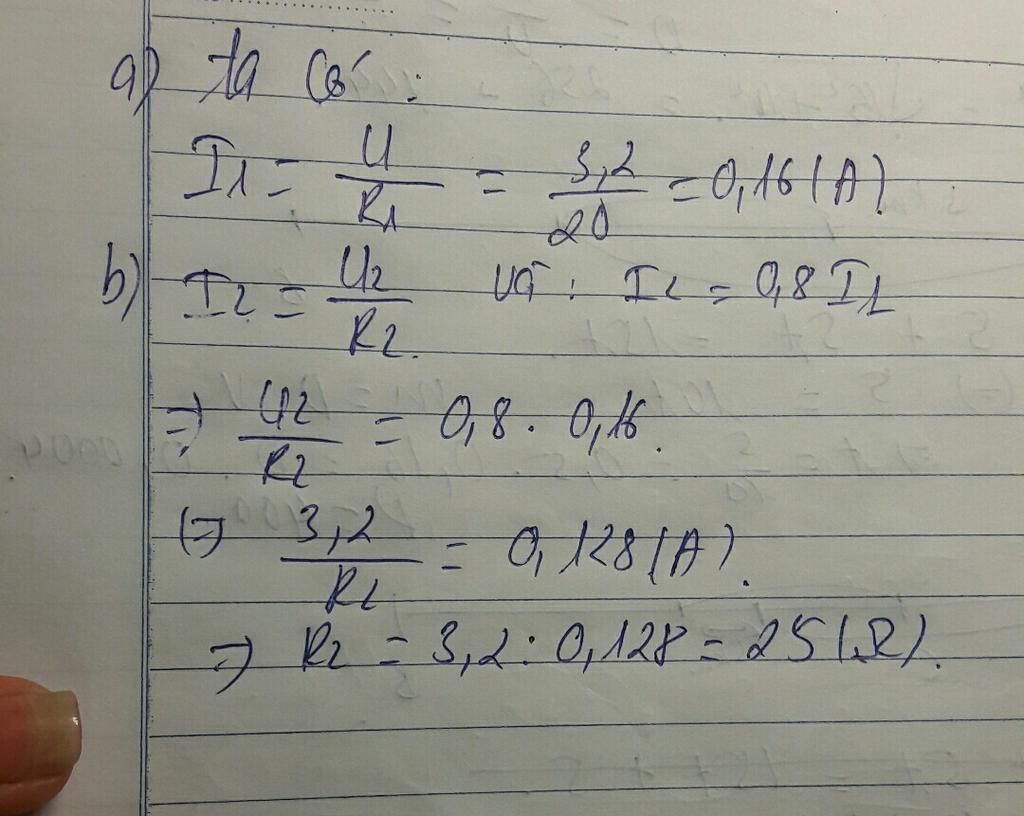 a) ta có :
I1 = U/R1 = 3,2/20 = 0,16 (A).
b) I2 = U2/R2. và : I2 = 0,8 I1
=> U2/R2 = 0,8 . 0,16.
(=> 3,2/R2 = 0,128 (A).
=> R2 = 3,2 : 0,128 = 25 (Ω).